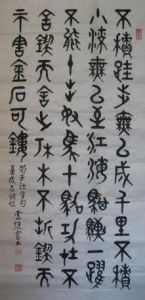 不積跬步無以成千里不積
小流無以至江海騏驥一躍
不能十步駑馬十駕功在不
舍鍥而舍之朽木不折鍥而
不舍金石可鏤
荀子勸學句